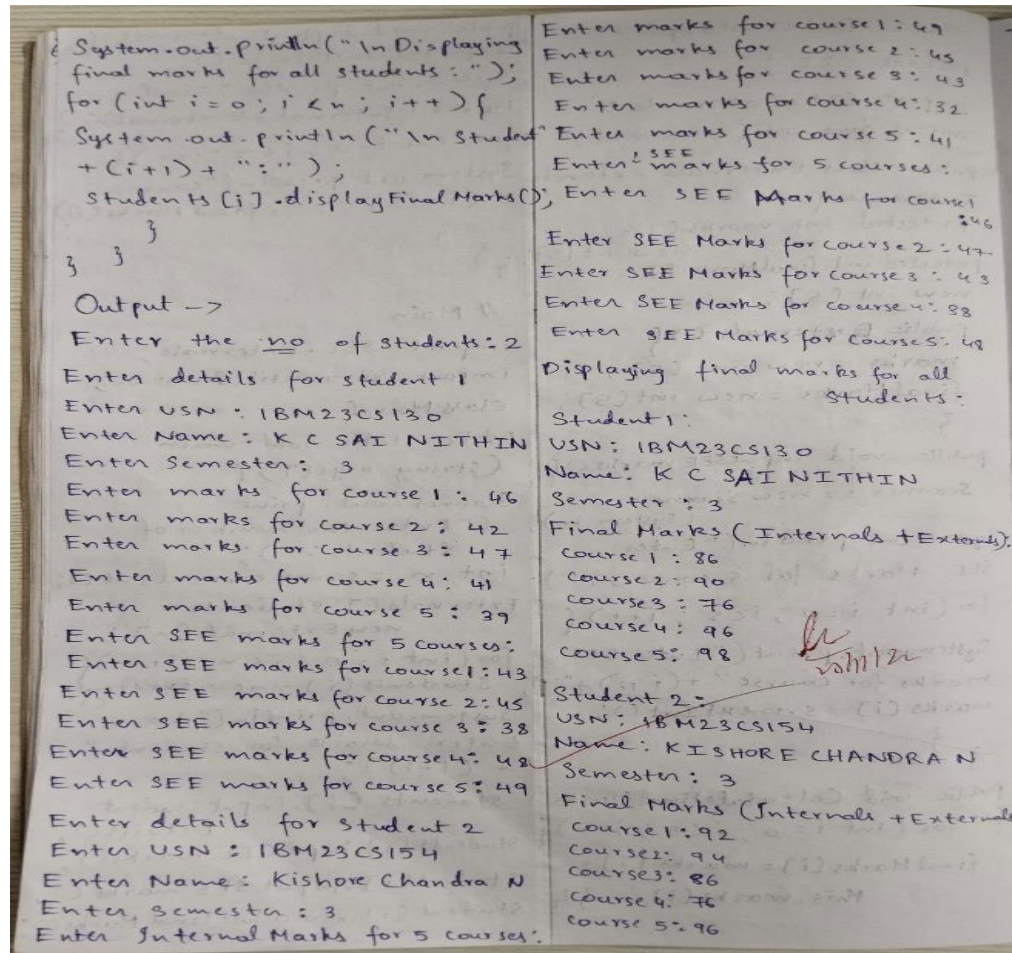 System.out.println("\n Displaying
final marks for all students : ");
for (int i = 0 ; i < n ; i++) {
System.out.println ("\n Student"
+ (i+1) + " : " );
Students [i] .displayFinalMarks();
}
}
}
Output ->
Enter the no of students: 2
Enter details for student 1
Enter USN : 1BM23CS130
Enter Name : K C SAI NITHIN
Enter Semester : 3
Enter marks for course 1 : 46
Enter marks for course 2 : 42
Enter marks for course 3 : 47
Enter marks for course 4 : 41
Enter marks for course 5 : 39
Enter SEE marks for 5 courses:
Enter SEE marks for course1 : 43
Enter SEE marks for course 2 : 45
Enter SEE marks for course 3 : 38
Enter SEE marks for course 4 : 48
Enter SEE marks for course 5 : 49
Enter details for student 2
Enter USN : 1BM23CS154
Enter Name : Kishore Chandra N
Enter semester : 3
Enter Internal Marks for 5 courses:
Enter marks for course 1 : 49
Enter marks for course 2 : 45
Enter marks for course 3 : 43
Enter marks for course 4 : 32
Enter marks for course 5 : 41
Enter SEE marks for 5 courses :
Enter SEE Marks for course1
: 46
Enter SEE Marks for course 2 : 47
Enter SEE Marks for course 3 : 43
Enter SEE Marks for course 4 : 38
Enter SEE Marks for course 5 : 48
Displaying final marks for all
Students :
Student 1 :
USN : 1BM23CS130
Name : K C SAI NITHIN
Semester : 3
Final Marks ( Internals + Externals).
course 1 : 86
course 2 : 90
course 3 : 76
course 4 : 96
course 5 : 98
Student 2 :
USN : 1BM23CS154
Name : KISHORE CHANDRA N
Semester : 3
Final Marks (Internals + Externals
course 1 : 92
course 2 : 94
course 3 : 86
course 4 : 76
course 5 : 96